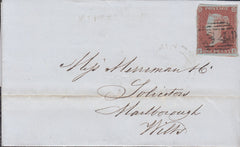 Miss Merriman & Co
Solicitors
Marlborough
Wilts